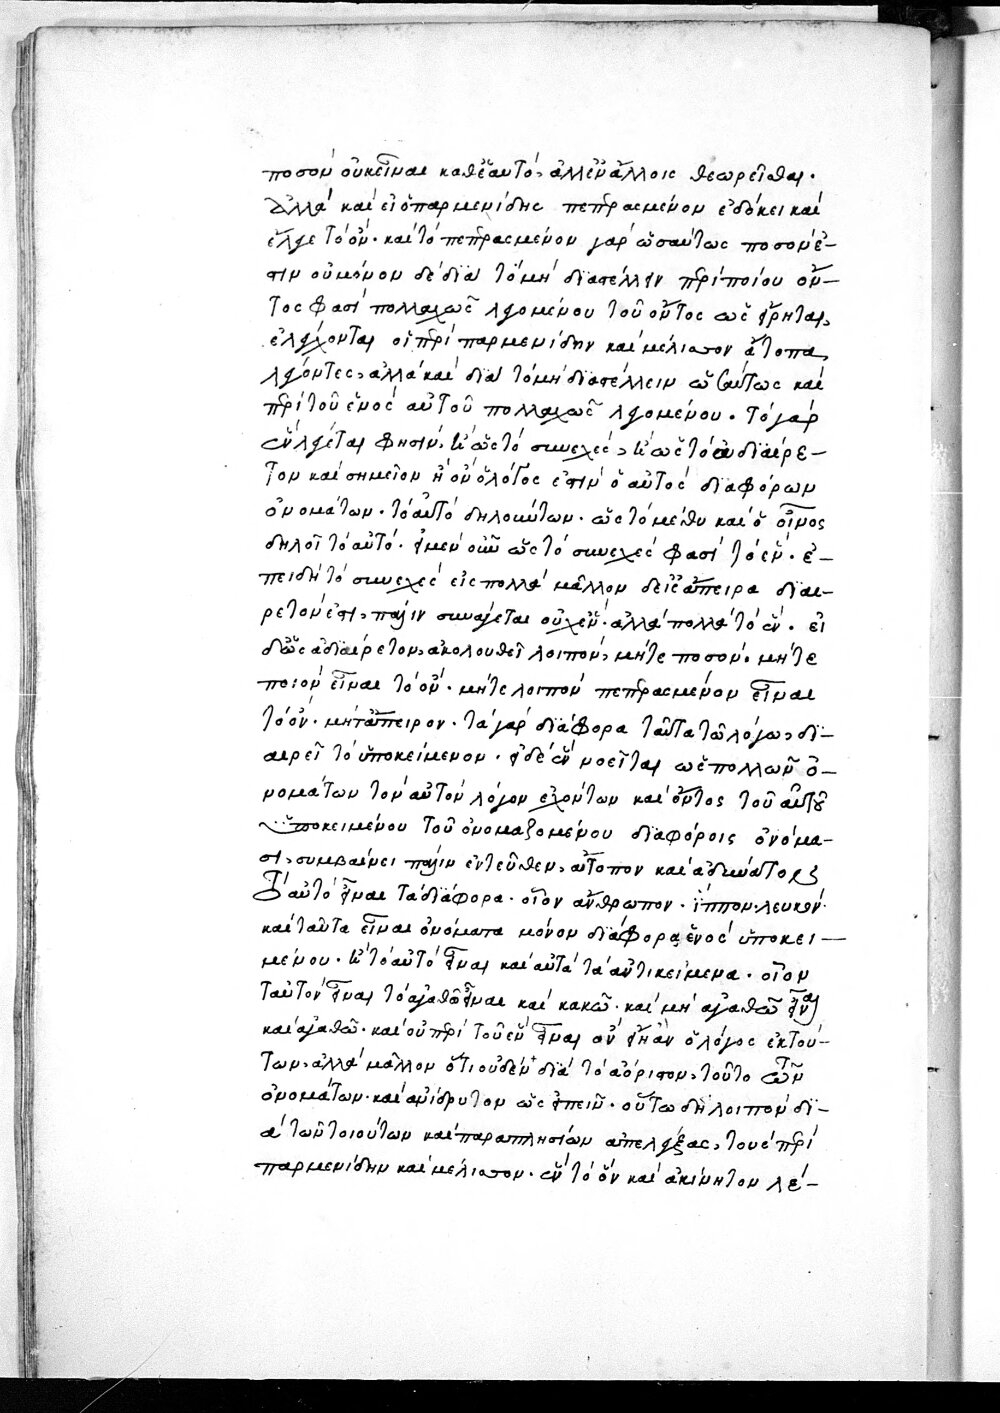 ποσὸν οὐκ εἶναι καθ' ἑαυτό, ἀλλ' ἐν ἄλλοις θεωρεῖσθαι.
Ἀλλὰ καὶ εἰ ὁ παρμενίδης πεπερασμένον ἐδόκει καὶ
ἔλεγε τὸ ὄν. καὶ τὸ πεπερασμένον γὰρ ὡσαύτως ποσὸν ἐ–
στιν οὐ μόνον δὲ διὰ τὸ μὴ διαστέλλειν περὶ ποίου ὄν–
τος φασὶ πολλαχῶς λεγομένου τοῦ ὄντος ὡς εἴρηται,
ἐλέγχονται οἱ περὶ παρμενίδην καὶ μέλισσον ἄτοπα
λέγοντες, ἀλλὰ καὶ διὰ τὸ μὴ διαστέλλειν ὡσαύτως καὶ
περὶ τοῦ ἑνὸς αὐτοῦ πολλαχῶς λεγομένου. τὸ γὰρ
ἓν λέγεται φησίν, καὶ ὡς τὸ συνεχές, καὶ ὡς τὸ ἀδιαίρε–
τον καὶ σημεῖον ἢ ὧν ὁ λόγος ἐστὶν ὁ αὐτὸς διαφόρων
ὀνομάτων. τὸ αὐτὸ δηλούντων. ὡς τὸ μέθυ καὶ ὁ οἶνος
δηλοῖ τὸ αὐτό. εἰ μὲν οὖν ὡς τὸ συνεχὲς φασὶ τὸ ἕν. ἐ–
πειδὴ τὸ συνεχὲς εἰς πολλὰ μᾶλλον δὲ εἰς ἄπειρα διαι–
ρετόν ἐστι, πάλιν συνάγεται οὐχ ἕν. ἀλλὰ πολλὰ τὸ ἕν. εἰ
δ' ὡς ἀδιαίρετον, ἀκολουθεῖ λοιπόν, μήτε ποσόν. μήτε
ποιὸν εἶναι τὸ ὄν. μήτε λοιπὸν πεπερασμένον εἶναι
τὸ ὄν. μήτ' ἄπειρον. τὰ γὰρ διάφορα ταῦτα τῷ λόγῳ, δι–
αιρεῖ τὸ ὑποκείμενον. εἰ δὲ ἓν νοεῖται ὡς πολλῶν ὀ–
νομάτων τὸν αὐτὸν λόγον ἐχόντων καὶ ὄντος τοῦ αὐτοῦ
ὑποκειμένου τοῦ ὀνομαζομένου διαφόροις ὀνόμα–
σι, συμβαίνει πάλιν ἐντεῦθεν, ἄτοπον καὶ ἀδύνατον
Τὸ αὐτὸ εἶναι τὰ διάφορα. οἷον ἄνθρωπον. ἵππον. λευκόν.
καὶ ταῦτα εἶναι ὀνόματα μόνον διάφορα, ἑνὸς ὑποκει–
μένου. καὶ τὸ αὐτὸ εἶναι καὶ αὐτὰ τὰ ἀντικείμενα. οἷον
ταὐτὸν εἶναι τὸ ἀγαθῷ εἶναι καὶ κακῷ. καὶ μὴ ἀγαθῷ εἶναι
καὶ ἀγαθῷ. καὶ οὐ περὶ τοῦ ἓν εἶναι ὂν εἴη ἂν ὁ λόγος ἐκ τού–
των, ἀλλὰ μᾶλλον ὅτι οὐδέν, διὰ τὸ ἀόριστον, τοῦτο ὧν
ὀνομάτων. καὶ ἀνίδρυτον ὡς εἰπεῖν. οὕτω δὴ λοιπὸν δι–
ὰ τῶν τοιούτων καὶ παραπλησίων ἀπελέγξας, τοὺς περὶ
παρμενίδην καὶ μέλισσον. ἓν τὸ ὂν καὶ ἀκίνητον λέ–